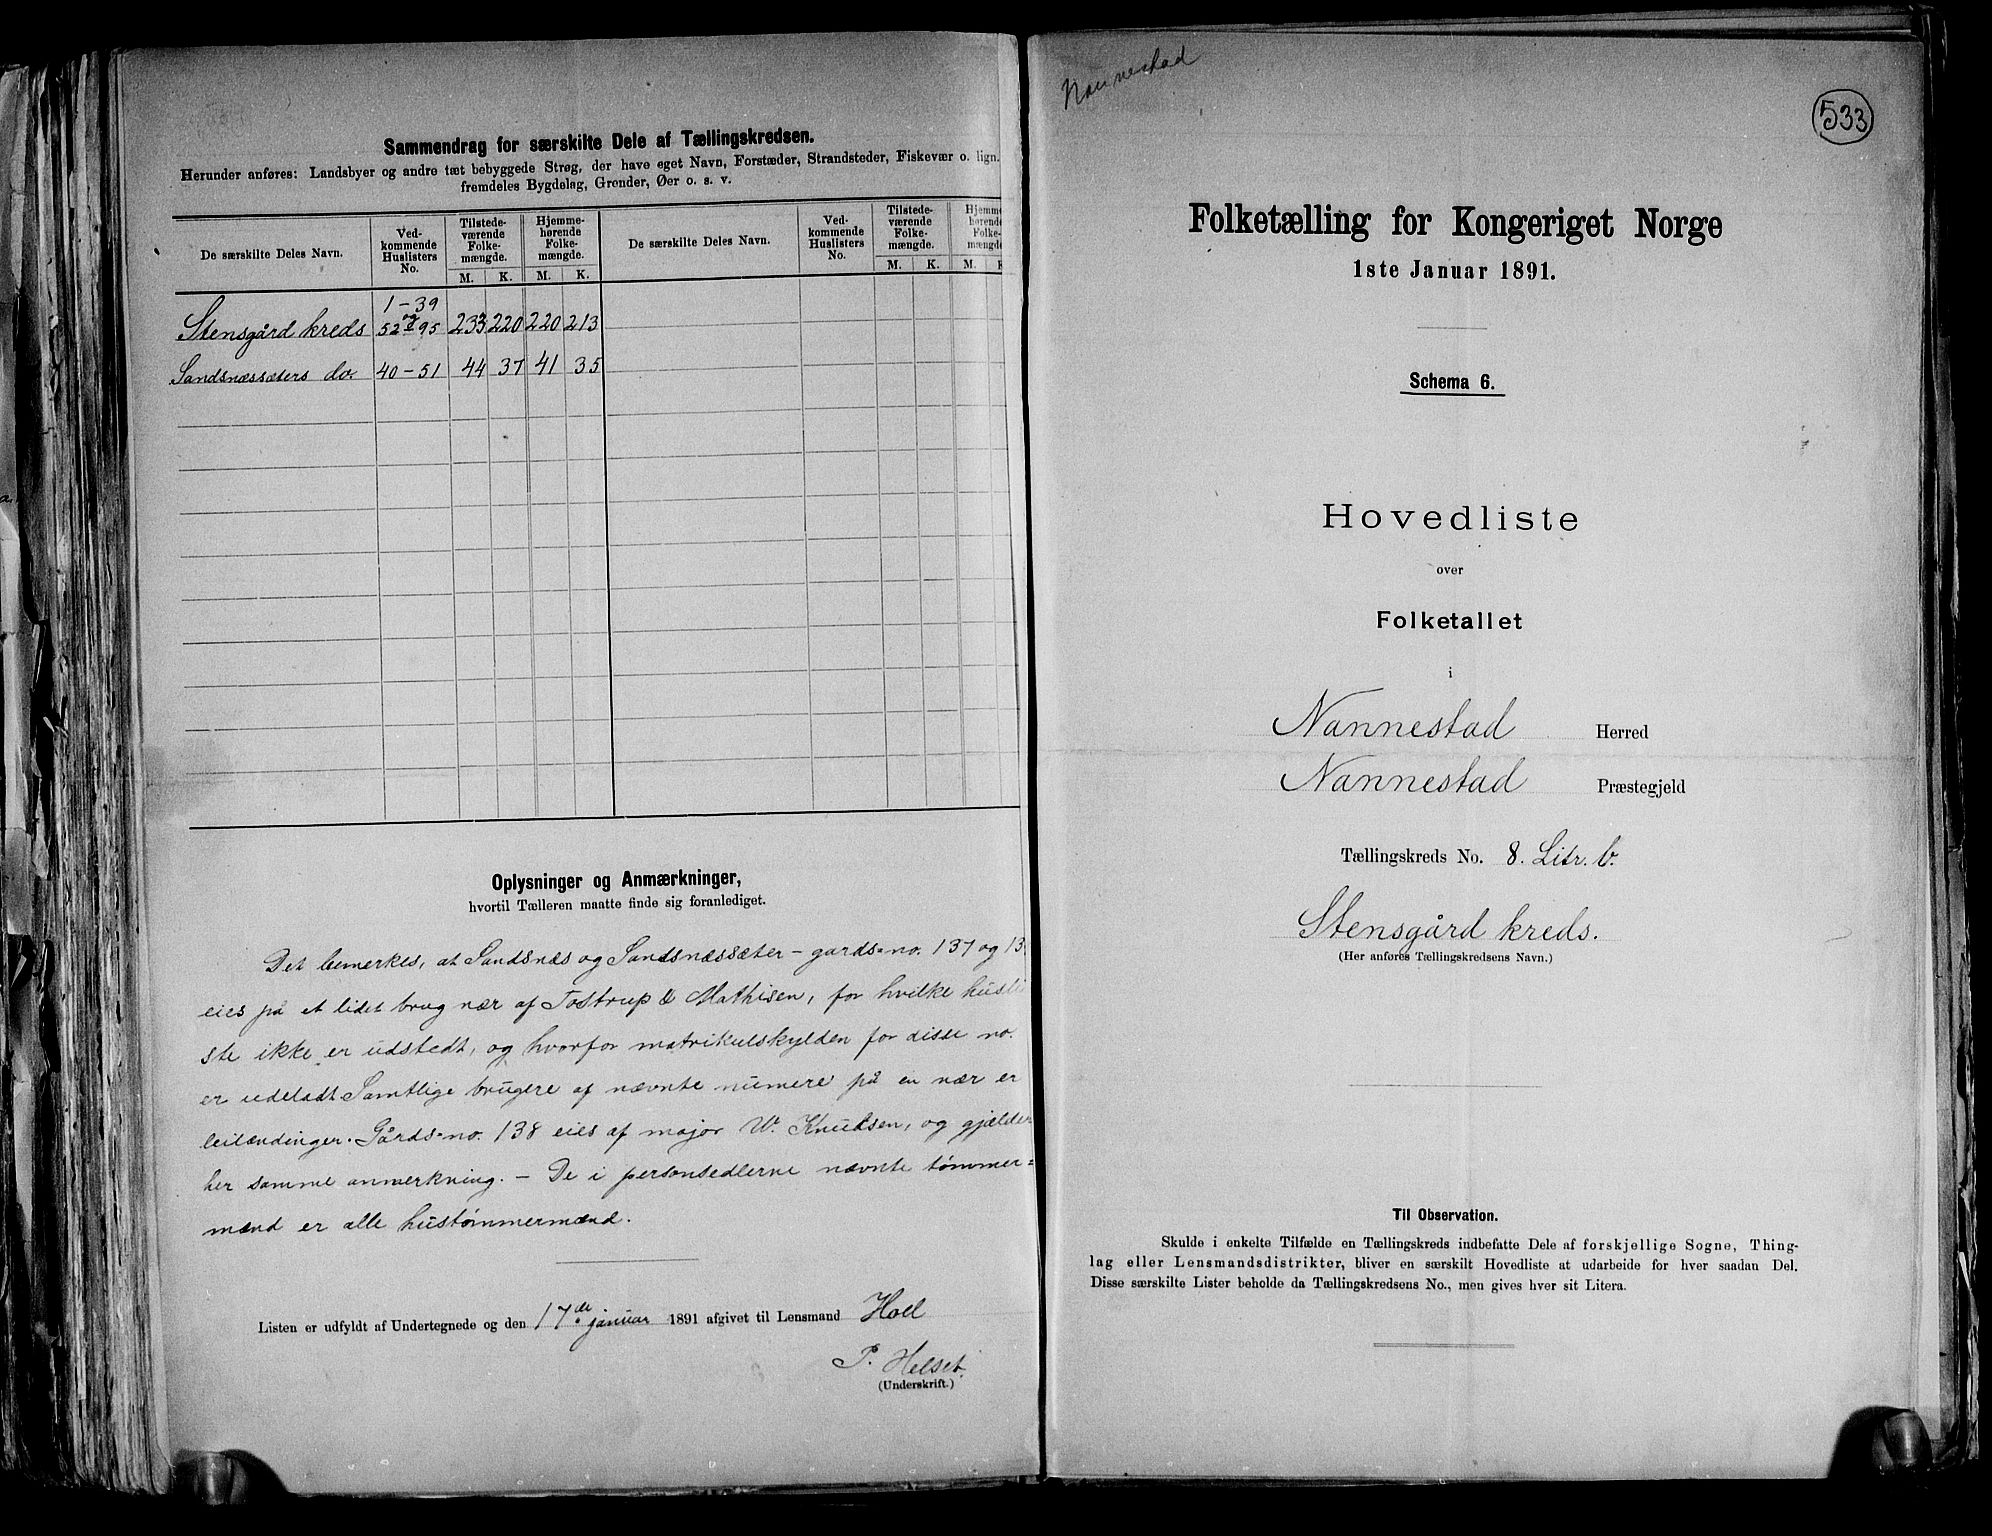 Sammendrag for særskilte Dele af Tællingskredsen.
Herunder anføres: Landsbyer og andre tæt bebyggede Strøg, der have eget Navn, Forstæder, Strandsteder, Fiskevær o. lign.
fremdeles Bygdelag, Grender, Øer o. s. v.
De særskilte Deles Navn. Ved-kommende Huslisters No. Tilstede-værende Folke-mængde. Hjemme-hørende Folke-mængde. De særskilte Deles Navn. Ved-kommende Huslisters No. Tilstede-værende Folke-mængde. Hjemme-hørende Folke-mængde.
M. K. M. K. M. K. M. K
1-39
og
Stensgård kreds 52-95 233 220 220 213
Sandsnæssæters do. 40-51 44 37 41 35
Oplysninger og Anmærkninger,
hvortil Tælleren maatte finde sig foranlediget.
Det bemerkes, at Sandsnæs og Sandsnæssæter - gards-no. 137 og
eies på et lidet brug nær af Tostrup & Mathisen, for hvilke husli
ste ikke er udstedt, og hvorfor matrikulskylden for disse no.
er udeladt Samtlige brugere af nævnte numere på en nær er
leilændinger. Gårds-no. 138 eies af major W. Knudsen, og gjælder
her samme anmerkning. - De i personsedlerne nævnte tømmer=
mænd er alle hustømmermænd.
Listen er udfyldt af Undertegnede og den 17de januar 1891 afgivet til Lensmand Holl
P. Helset.
(Underskrift.)
Nannestad
533
Folketælling for Kongeriget Norge
1ste Januar 1891.
Schema 6.
Hovedliste
over
Folketallet
i
Nannestad Herred
Nannestad Præstegjeld
Tællingskreds No. 8. Litr. b.
Stensgård kreds.
(Her anføres Tællingskredsens Navn.)
Til Observation.
Skulde i enkelte Tilfælde en Tællingskreds indbefatte Dele af forskjellige Sogne, Thing-
lag eller Lensmandsdistrikter, bliver en særskilt Hovedliste at udarbeide for hver saadan Del.
Disse særskilte Lister beholde da Tællingskredsens No., men gives hver sit Litera.